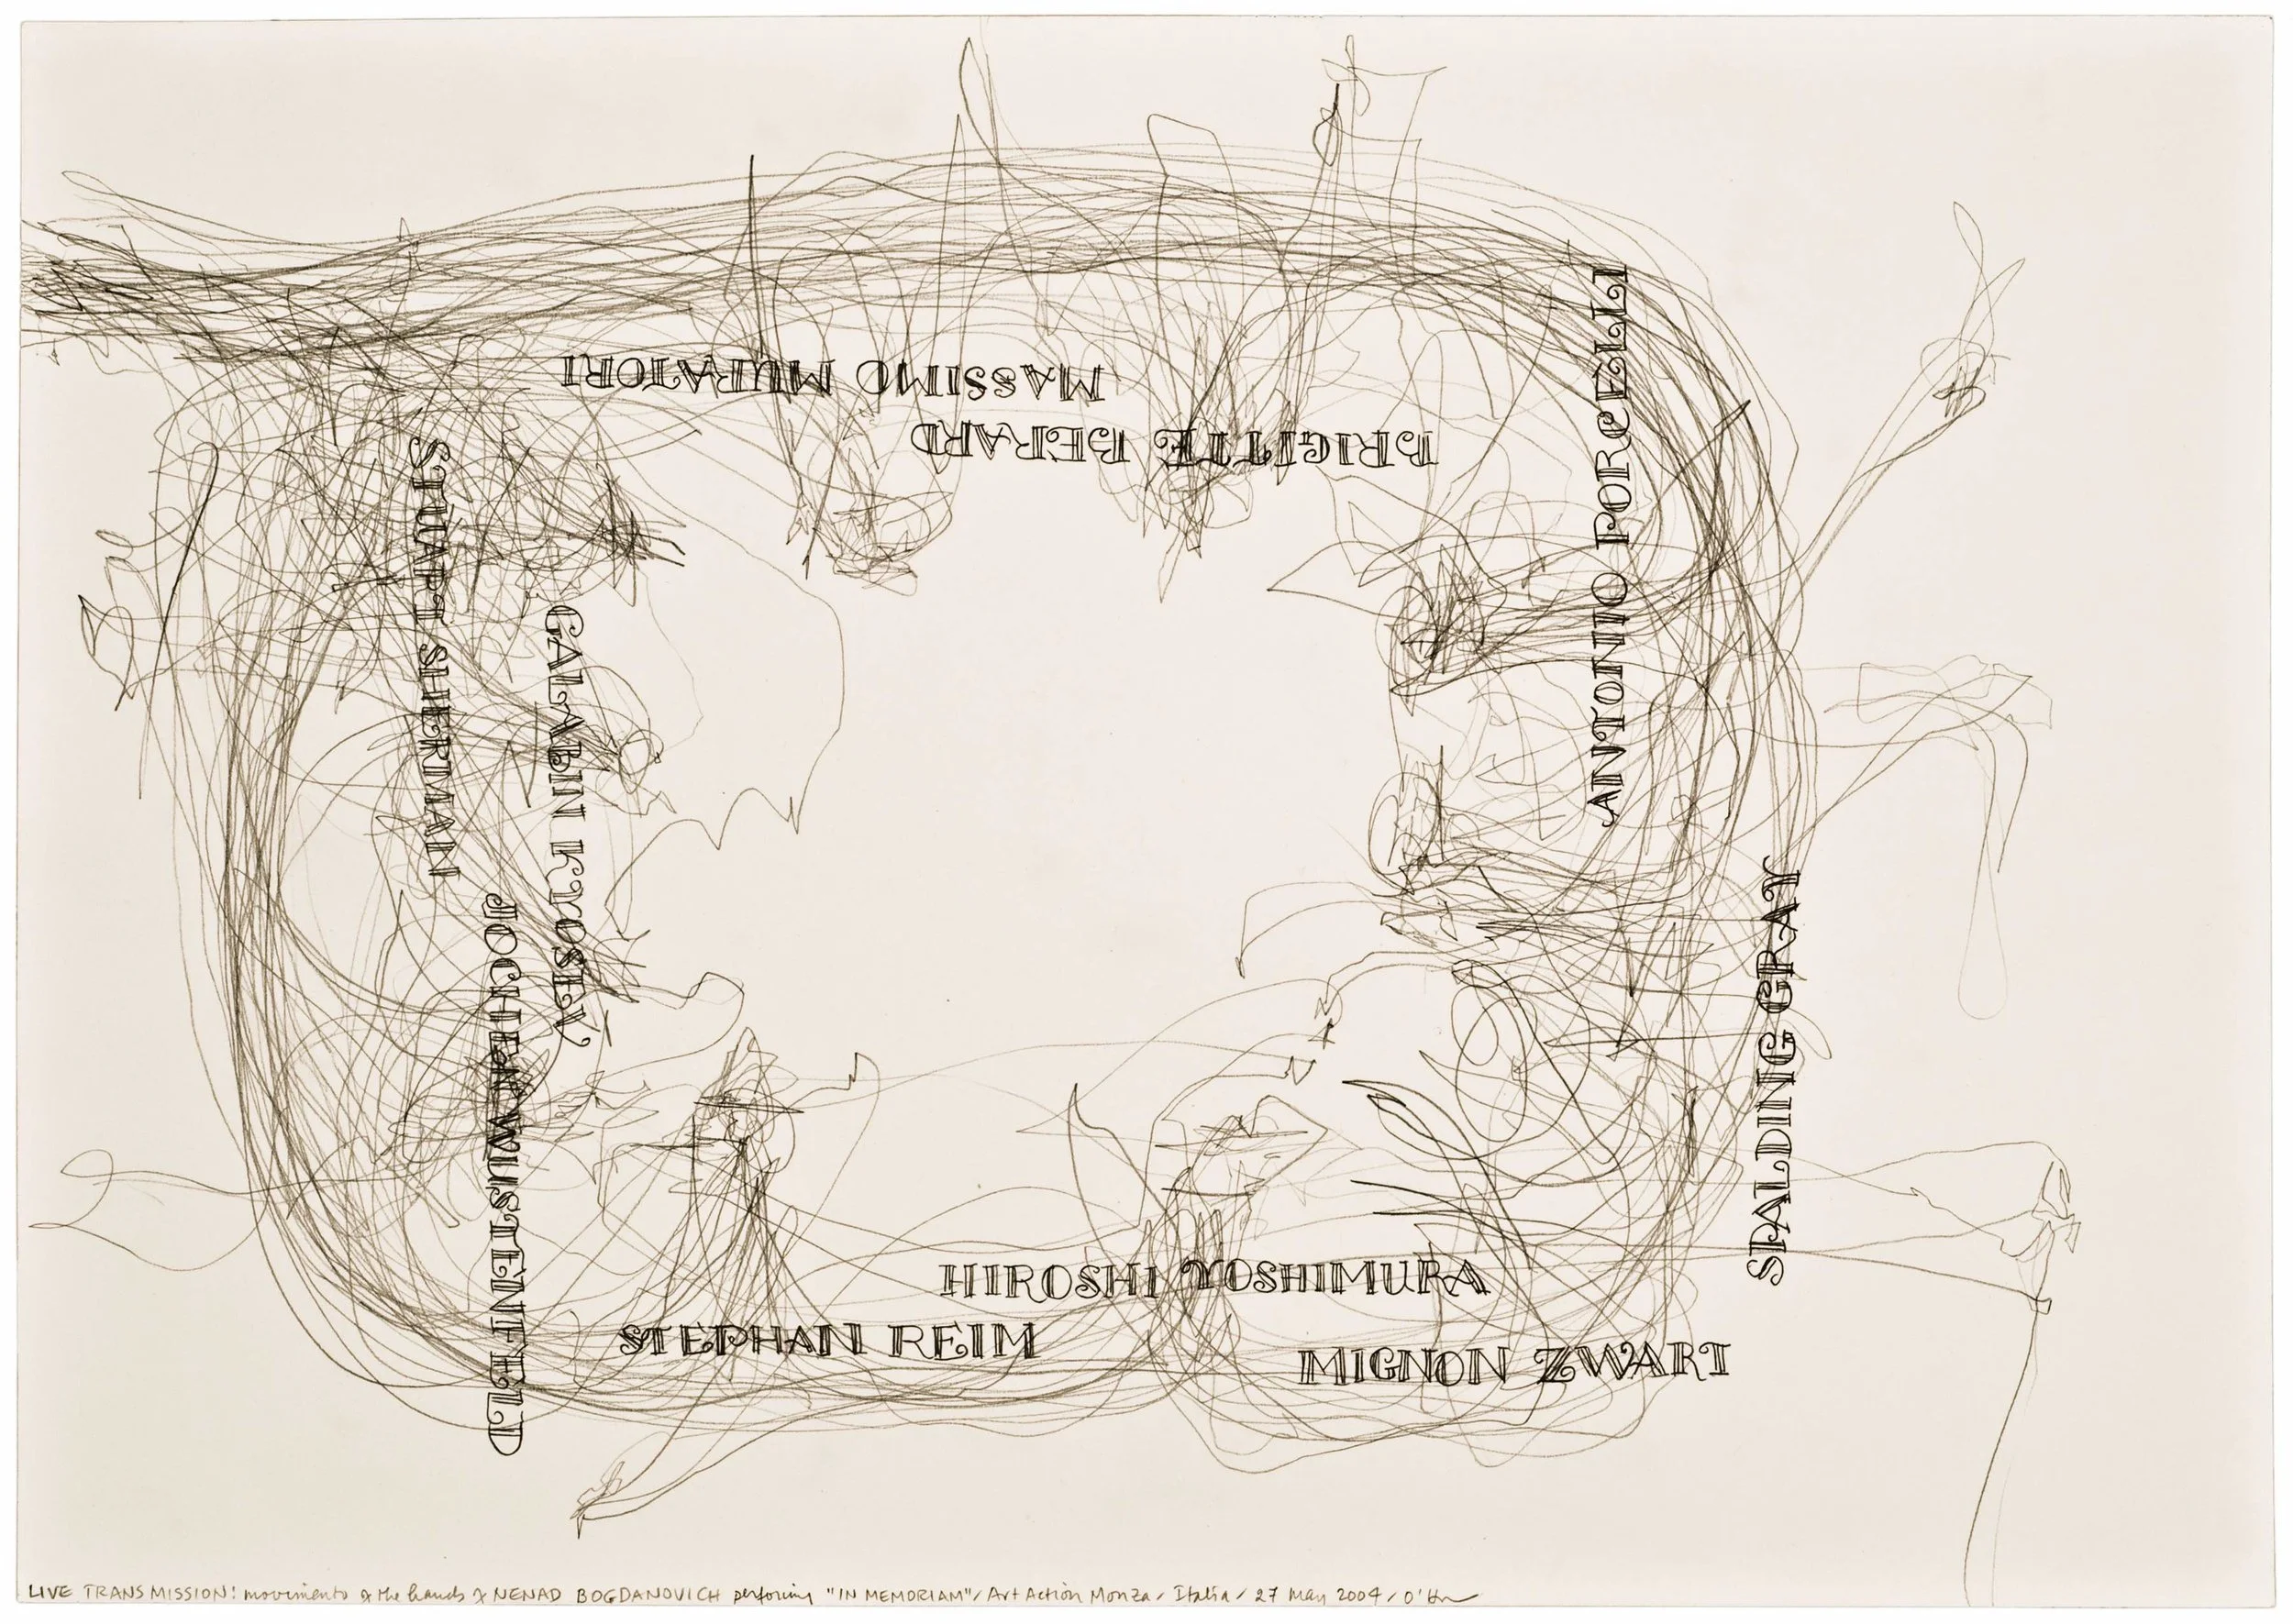 MASSIMO MURATORI
BRIGITTE BERARD
ANTONIO PORCELLI
STUART SHERMAN
GALABIN KYOSEV
JOCHEN WUSTENFELD
SPALDING GRAY
HIROSHI YOSHIMURA
STEPHAN REIM
MIGNON ZWART
LIVE TRANSMISSION: movements of the hands of NENAD BOGDANOVICH performing "IN MEMORIAM" / Art Action Monza / Italia / 27 May 2004 /